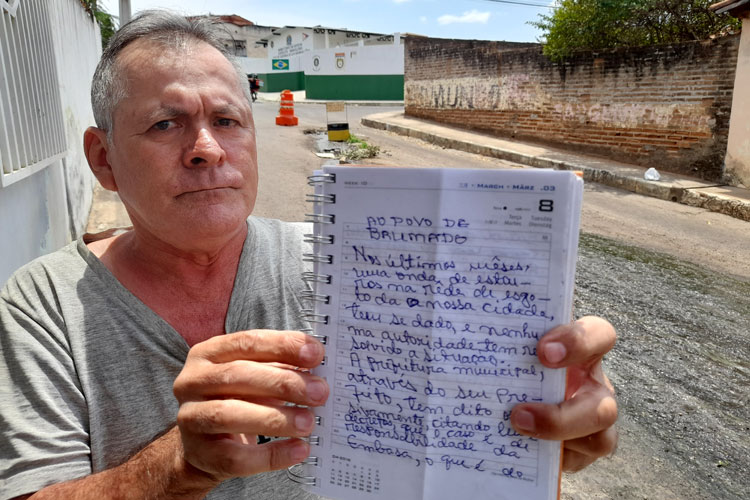 MARCH • MÄRZ .03
8
Terça
Tuesday
Martes
Dienstag
AO POVO DE
BRUMADO
Nos últimos mêses,
uma onda de estou-
ros na rêde de esgo-
to da nossa cidade,
tem se dado, e nenhu
ma autoridade tem re
solvido a situação.
A prefeitura municipal,
através do seu pre-
feito, tem dito
citando
decretos, que o caso é de
responsabilidade da
Embasa, o que é do